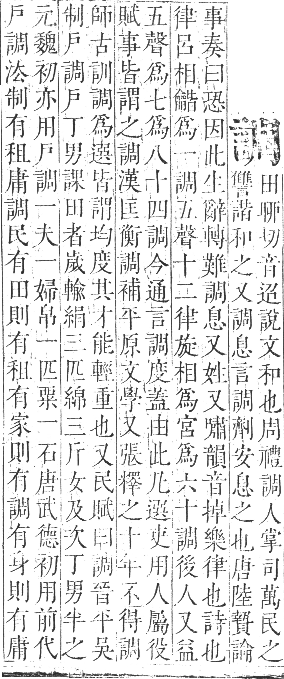 調
田聊切音迢說文和也周禮調人掌司萬民之
讐諧和之又調息言調劑安息之也唐陸贄論
事奏曰恐因此生辭轉難調息又姓又嘯韻音掉樂律也詩也
律呂相觸爲一調五聲十二律旋相爲宮爲六十調後人又益
五聲爲七爲八十四調今通言調度蓋由此凡選吏用人屬役
賦事皆謂之調漢匡衡調補平原文學又張釋之十年不得調
師古訓調爲選皆謂均度其才能輕重也又民賦曰調晉平吳
制戶調戶丁男課田者歲輸絹三匹綿三斤女及次丁男半之
元魏初亦用戶調一夫一婦帛一匹粟一石唐武德初用前代
戶調法制有租庸調民有田則有租有家則有調有身則有庸